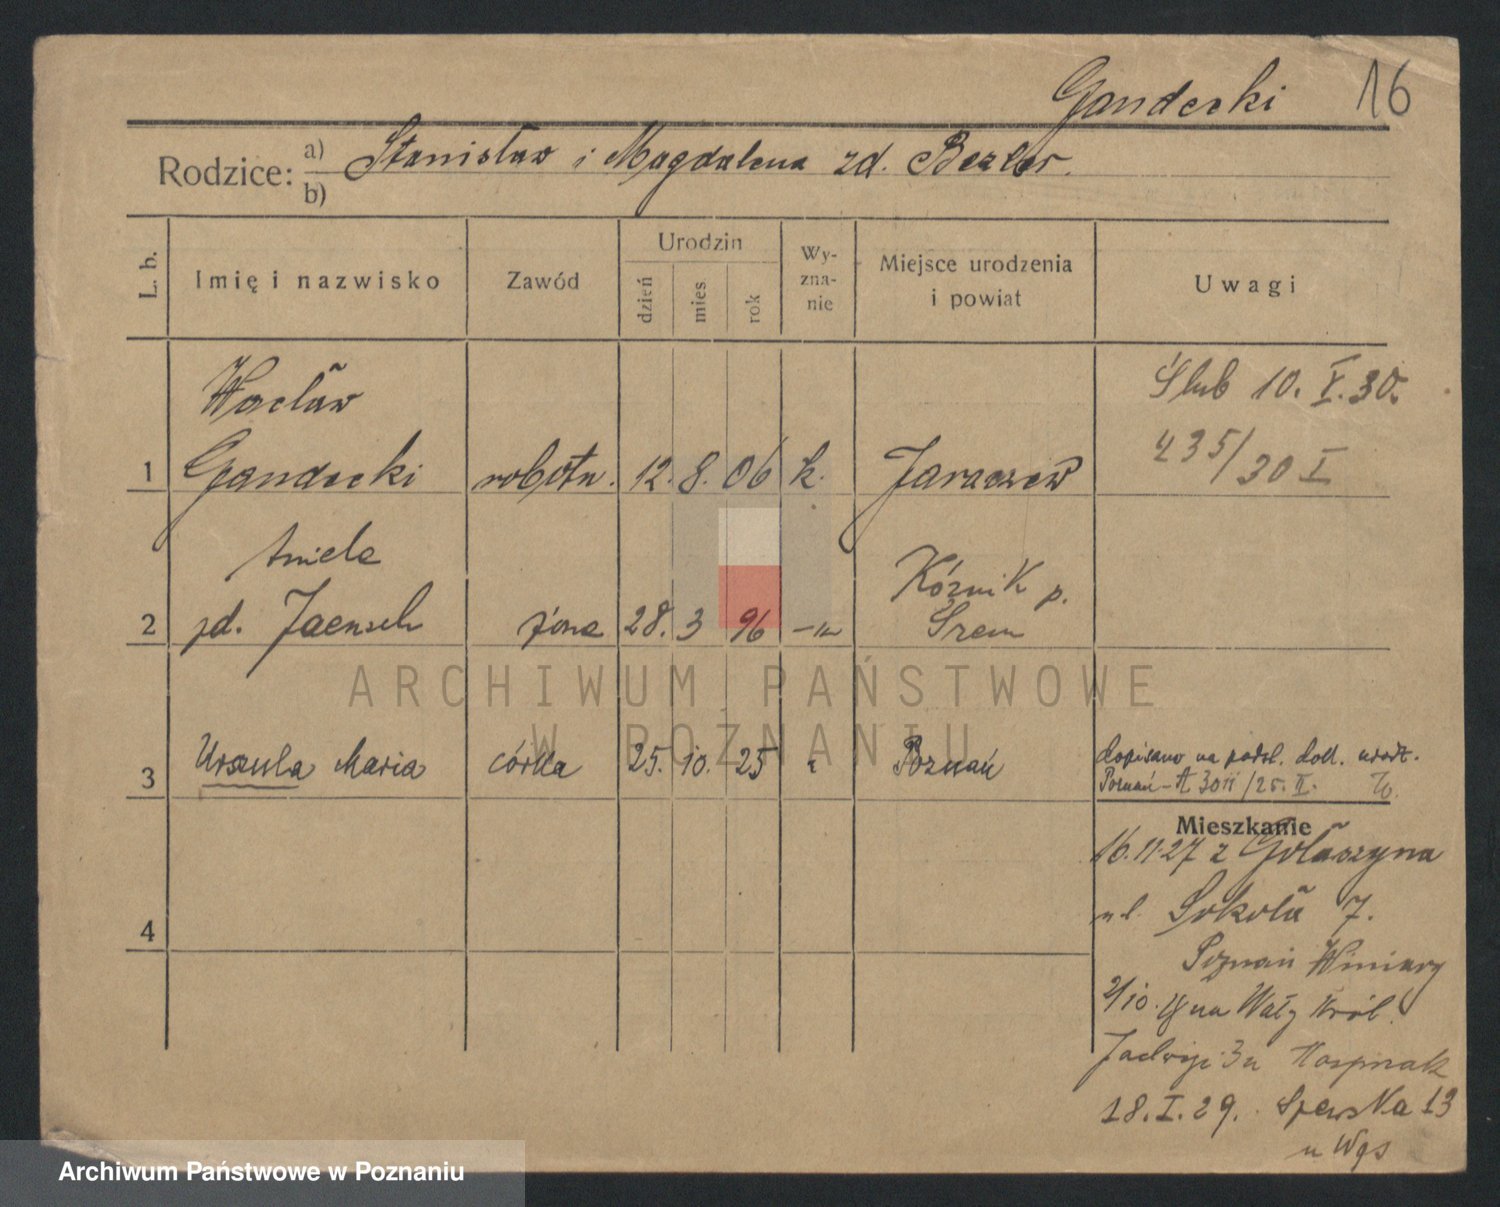 Gandecki 16
Rodzice: a) b) Stanisław i Magdalena zd. Bezler.
L. b. Imię i nazwisko Zawód Urodzin dzień mies rok Wy-zna-nie Miejsce urodzenia i powiat Uwagi
Wacław
Ślub 10. V. 30.
1 Gandecki robotn. 12. 8. 06 k. Jaraczew
435/30 I
Aniela
Kórnik p.
2 zd. Jaensch żona 28. 3 96 -"- Śrem
ARCHIWUM PAŃSTWOWE
W POZNANIU
3 Urszula Maria córka 25. 10. 25 " Poznań
dopisano na podst. dod. urodz.
Poznań - A 3011/25. II.
Mieszkanie
16.11.27 z Gołaszyna
ul. Sokoła 7.
4
Poznań Winiary
2/10. na Wały Król.
Jadwigi 3 u
18. I. 29. Szewska 13
u Wgs
Archiwum Państwowe w Poznaniu